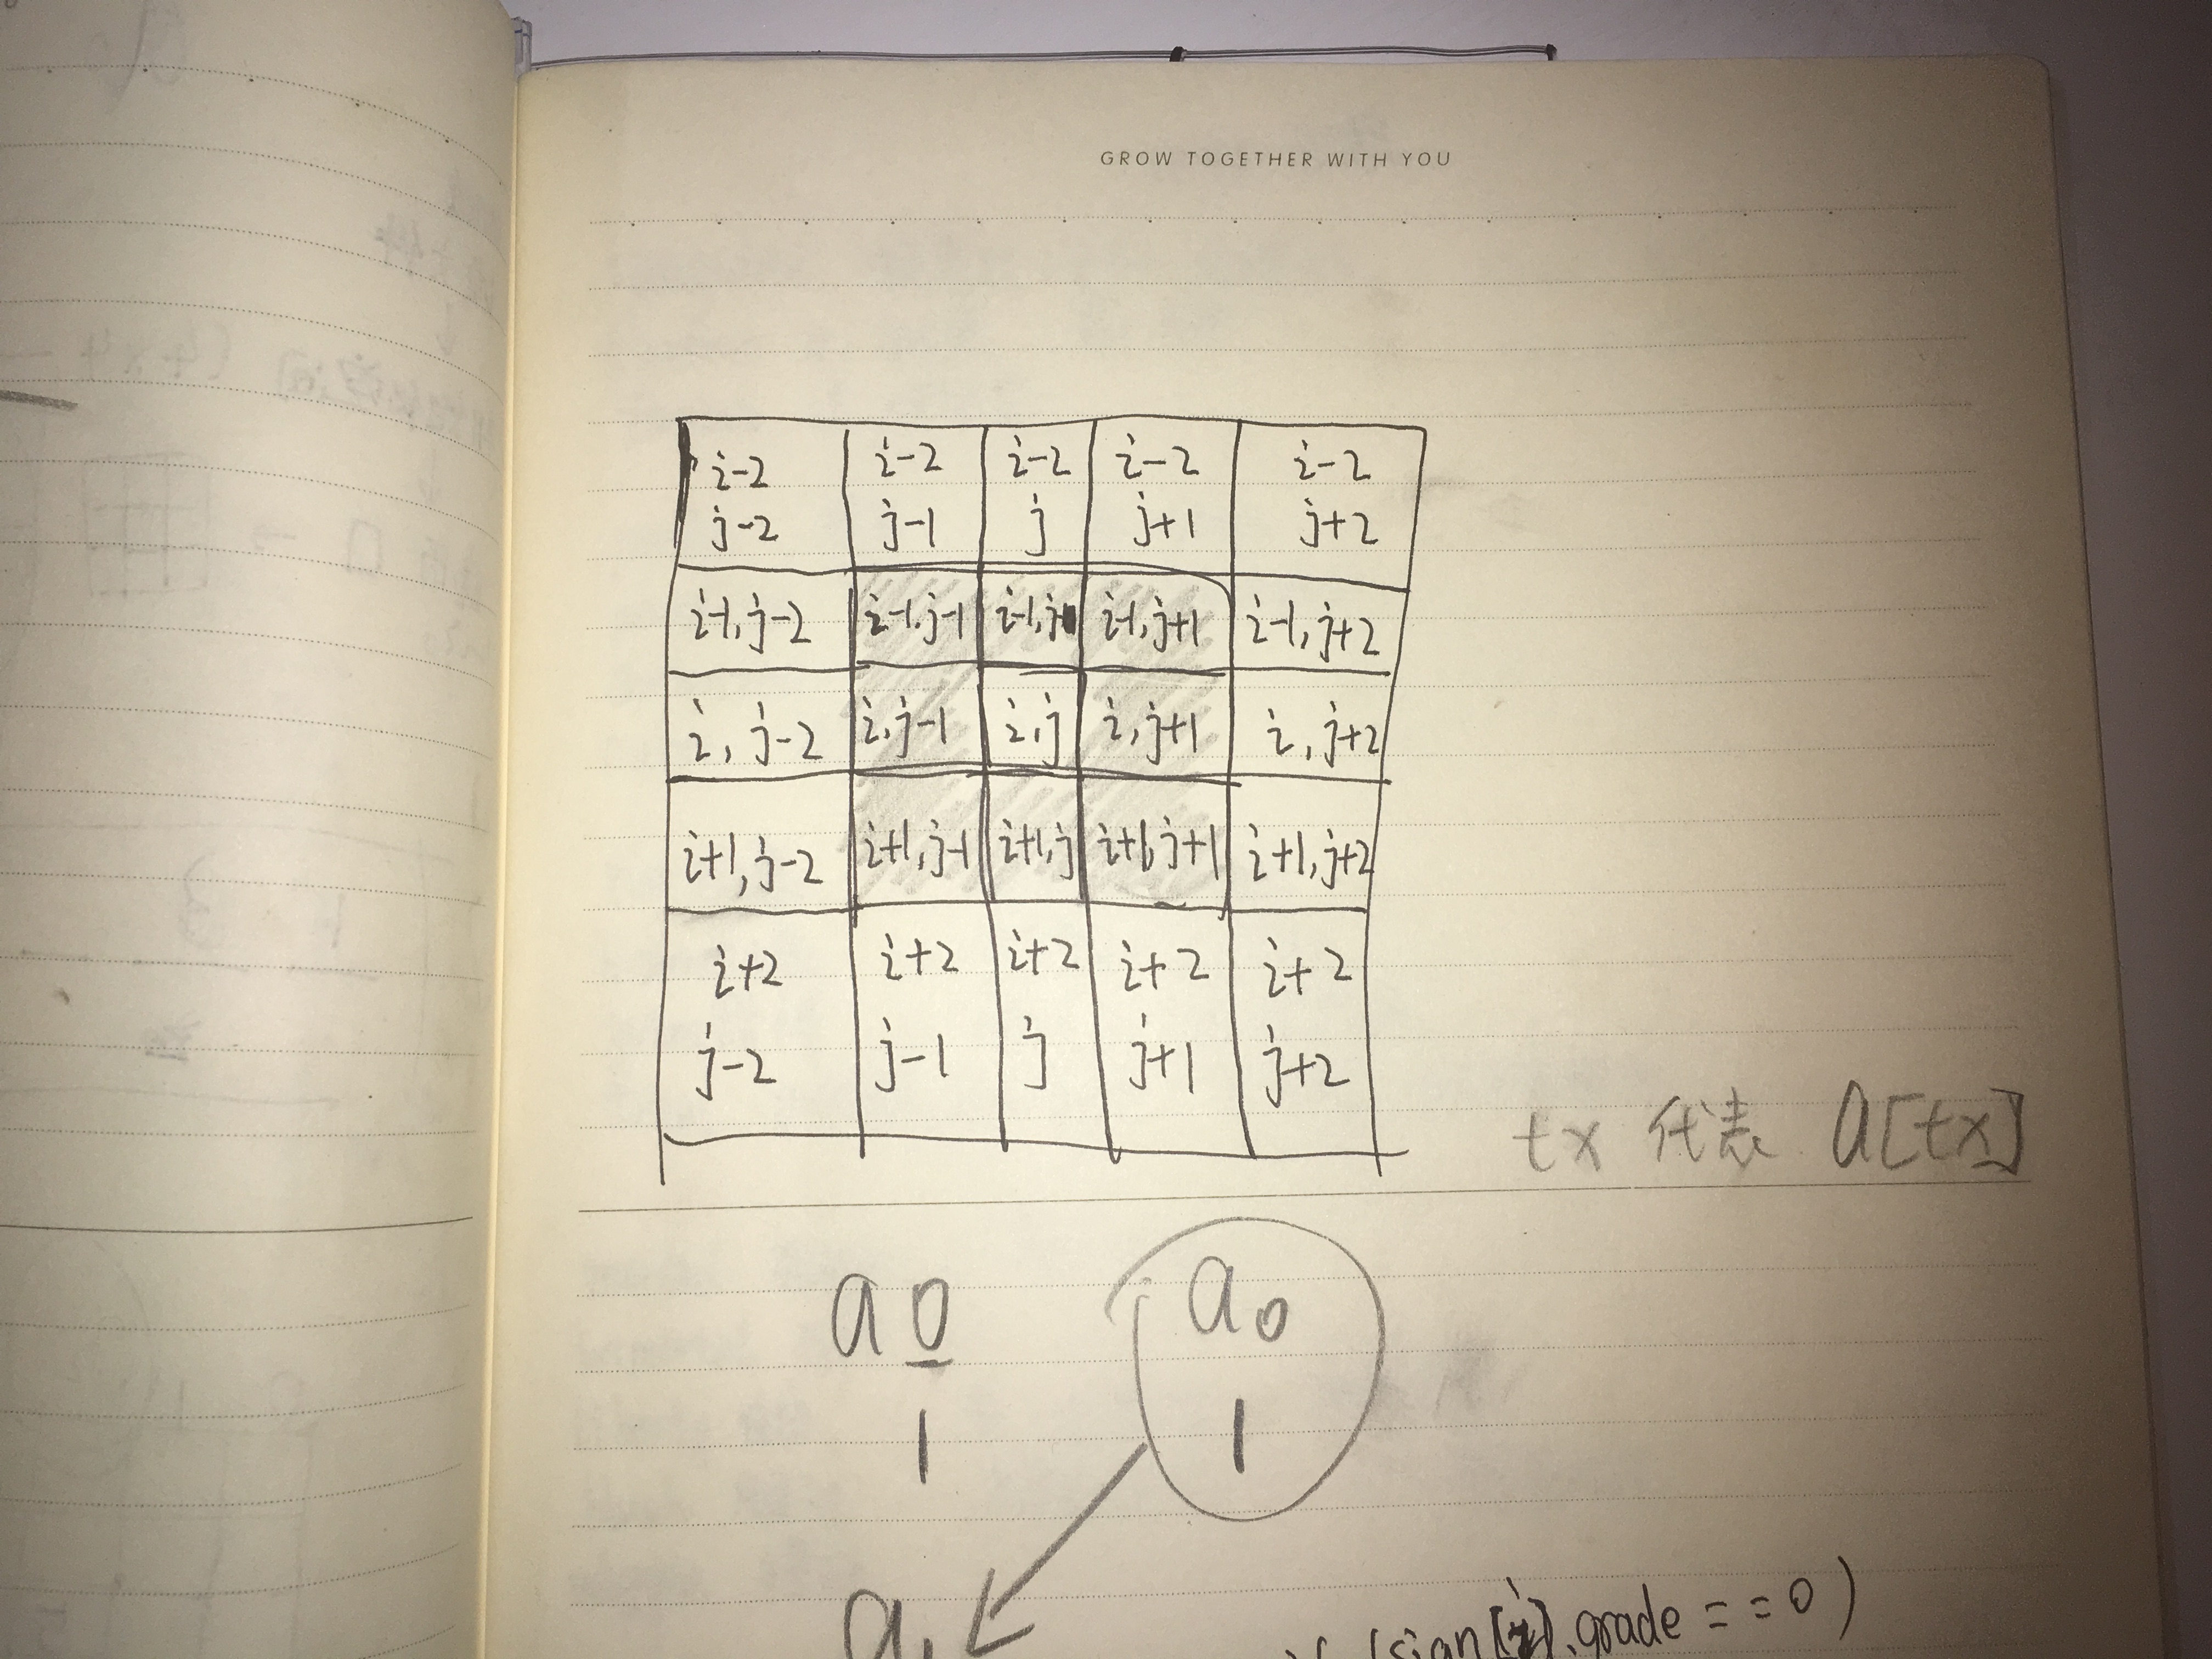 GROW TOGETHER WITH YOU
i-2 i-2 i-2 i-2 i-2
j-2 j-1 j j+1 j+2
i-1,j-2 i-1,j-1 i-1,j i-1,j+1 i-1,j+2
i,j-2 i,j-1 i,j i,j+1 i,j+2
i+1,j-2 i+1,j-1 i+1,j i+1,j+1 i+1,j+2
i+2 i+2 i+2 i+2 i+2
j-2 j-1 j j+1 j+2
tx 代表 a[tx]
a0 a0
1 1
if (sign[i].grade==0)